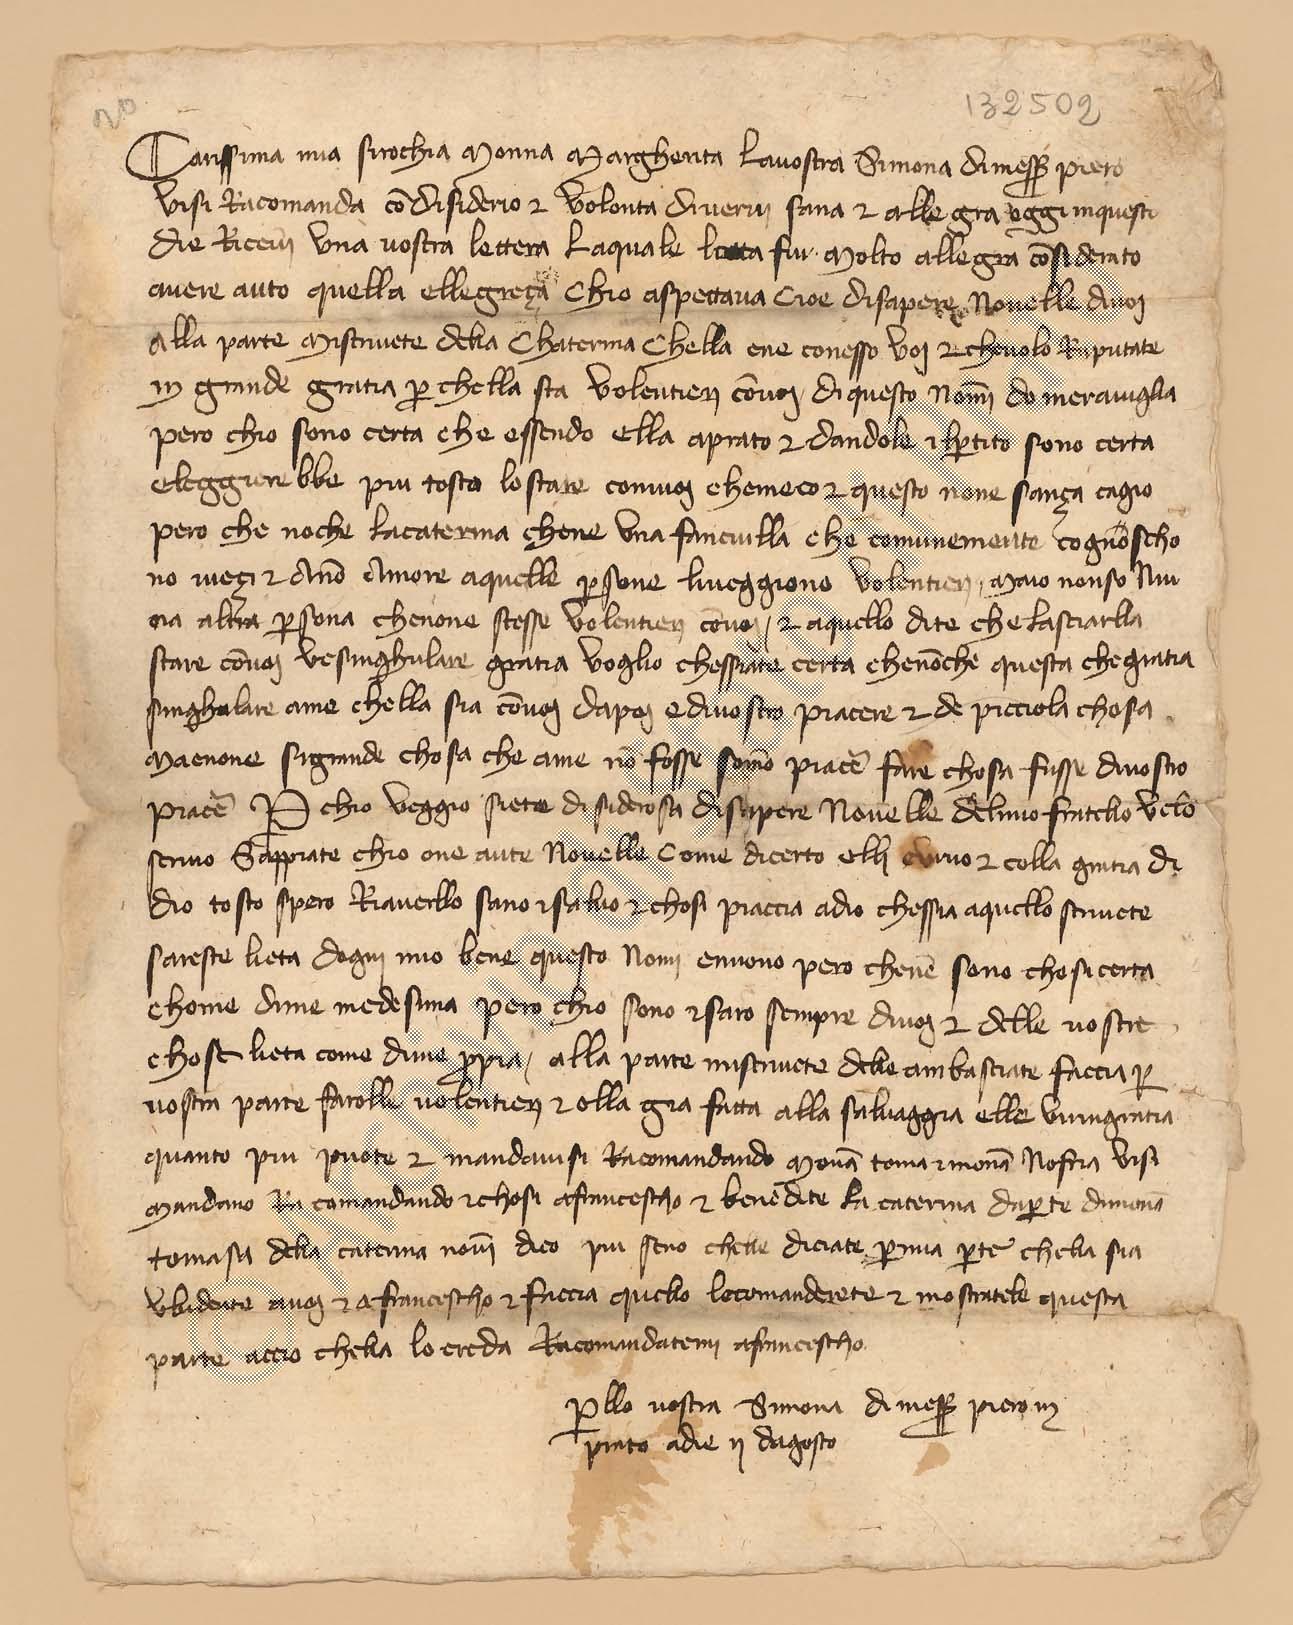 132509
Carissima mia sirochia Monna Margherita Lavostra Simona dimesser piero
visi Racomanda cō disiderio ⁊ volonta divervi sana ⁊ allegra oggi inquesto
die Ricevi una vostra lettera Laquale letta fui Molto allegra cōsiderato
avere avto quella ellegreça Chio aspettava Cioe disapere Novelle divoj
Alla parte Miscrivete della Chaterina Chella ene conesso voj ⁊ chevolo Riputate
in grande gratia p chella sta volentierj cōvoj di questo Nōmi do meraviglia
pero chio sono certa che essendo ella aprato ⁊ dandole ilptito sono certa
eleggierebbe piu tosto lo stare convoj chemeco ⁊ questo none sança cagio
pero che noche Lacaterina chene una fanciulla che comunemente cognoscho
no iveçi ⁊ anō Amore aquelle psone liveggiono volentierj Maio nonso Niu
na altra psona chenone stesse volentierj cōvoj / ⁊ aquello dite che Lasciarlla
stare cōvoj vesinghulare gratia voglio chessiate certa chenōche questa chegratia
singhulare ame chella sia cōvoj dapoj edivostro piacere ⁊ de picciola chosa
Maenone sigrande chosa che ame nō fosse somō piacē fare chosa fusse divostro
piacē P chio veggio siete disiderosa disapere Novelle delmio fratello velo
scrivo Sappiate chio one aute Novelle Come dicerto elli evivo ⁊ colla gratia di
dio tosto spero Riaverllo sano ⁊ salvo ⁊ chosi piaccia adio chessia aquello scrivete
sareste lieta dogni mio bene questo Nomi ennovo pero chenē sono chosicerta
chome dime medesima pero chio sono ⁊ saro sempre divoj ⁊ delle vostre
chose lieta come dime ppia / alla parte miscrivete delle ambasciate faccia p
vostra parte farolle volentierj ⁊ olla gia fatta alla salvaggia elle viringratia
quanto piu puote ⁊ mandavisi Racomandando Monā toma ⁊ monā Nofria visi
Mandano Racomandando ⁊ chosi afrancescho ⁊ benedite La caterina dapte dimona
tomasa della caterina nōvi dico piu seno chelle diciate pmia pte chella sia
ubidente avoj ⁊ afrancescho ⁊ faccia quello lecomanderete ⁊ mostratele questa
parte accio chella lo creda Racomandatemi afrancescho
Pllo vostra Simona dimesser piero in
prato adie ij dagosto